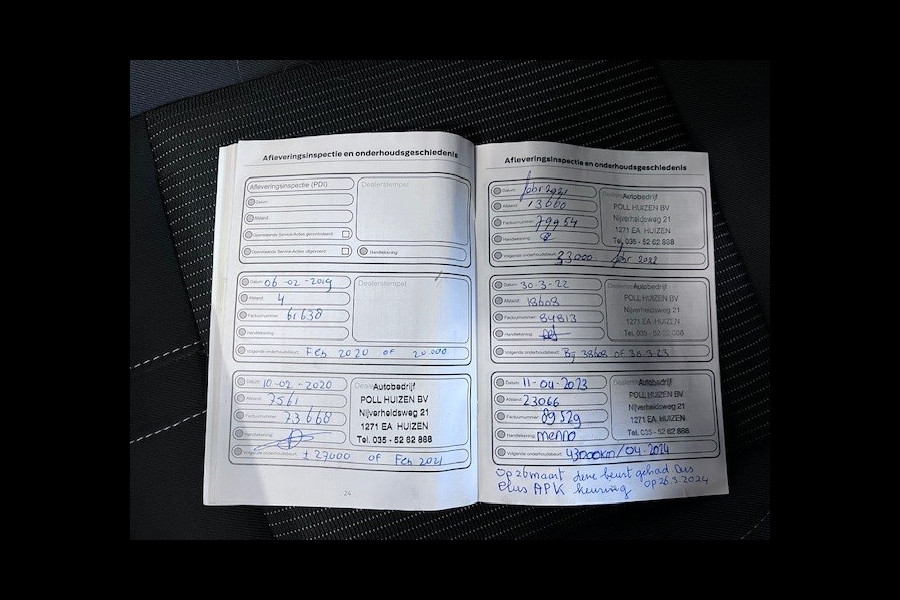 Afleveringsinspectie en onderhoudsgeschiedenis
Afleveringsinspectie (PDI)
Dealerstempel
Datum:
Afstand:
Openstaande Service-Acties gecontroleerd:
Openstaande Service-Acties uitgevoerd:
Handtekening:
Datum: 06-02-2019
Dealerstempel
Afstand: 4
Factuurnummer: 61638
Handtekening:
Volgende onderhoudsbeurt: Feb 2020 of 20.000
Datum: 10-02-2020
Autobedrijf
Afstand: 7561
POLL HUIZEN BV
Factuurnummer: 73668
Nijverheidsweg 21
Handtekening:
1271 EA HUIZEN
Tel. 035 - 52 62 888
Volgende onderhoudsbeurt: ± 27000 of Feb 2021
24
Afleveringsinspectie en onderhoudsgeschiedenis
Datum: febr 2021
Autobedrijf
Afstand: 13600
POLL HUIZEN BV
Factuurnummer: 79954
Nijverheidsweg 21
Handtekening:
1271 EA HUIZEN
Tel. 035 - 52 62 888
Volgende onderhoudsbeurt: 33000 febr 2022
Datum: 30-3-22
Autobedrijf
Afstand: 18608
POLL HUIZEN BV
Factuurnummer: 84813
Nijverheidsweg 21
Handtekening:
1271 EA HUIZEN
Tel. 035 - 52 62 888
Volgende onderhoudsbeurt: Bij 38608 of 30-3-23
Datum: 11-04-2023
Autobedrijf
Afstand: 23066
POLL HUIZEN BV
Factuurnummer: 89529
Nijverheidsweg 21
Handtekening: menno
1271 EA HUIZEN
Tel. 035 - 52 62 888
Volgende onderhoudsbeurt: 43000km/04-2024
Op 26 maart deze beurt gehad Dus
Plus APK keuring op 26.3.2024